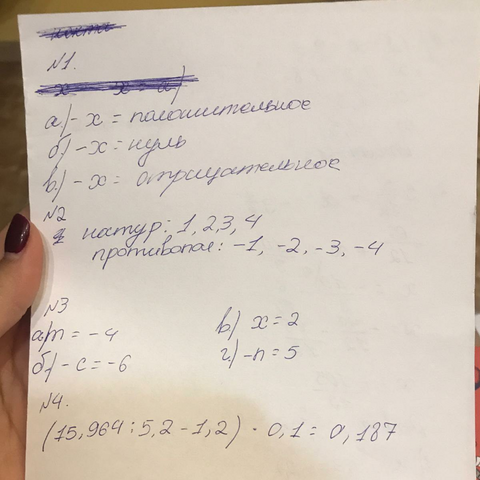 №1.
а) -x = положительное
б) -x = нуль
в) -x = отрицательное
№2
натур: 1, 2, 3, 4
противопол: -1, -2, -3, -4
№3
а) m = -4
в) x = 2
б) -c = -6
г) -n = 5
№4.
(15,964 : 5,2 - 1,2) · 0,1 = 0,187